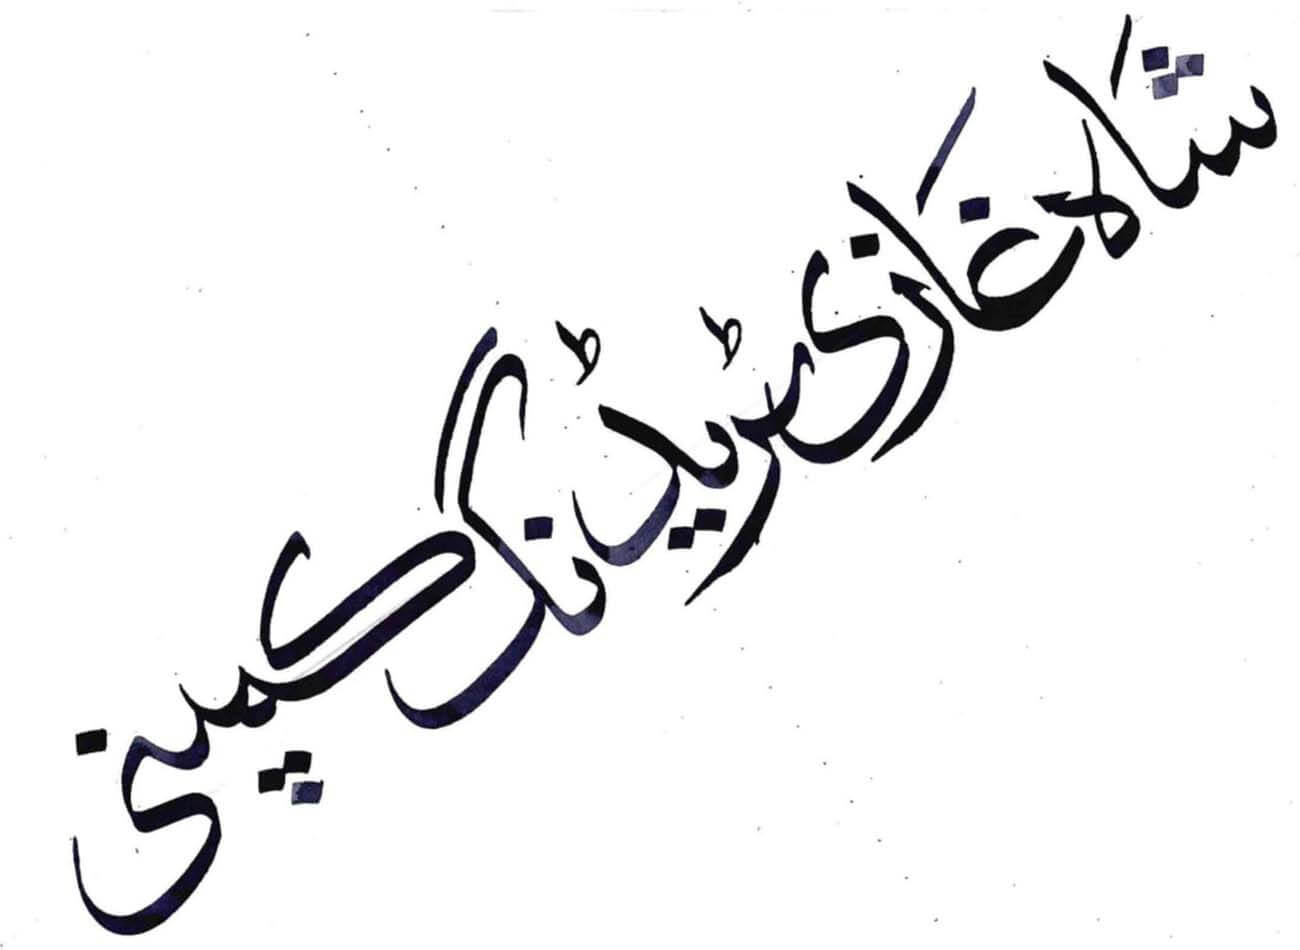 شاہ غازی ٹریڈنگ کمپنی